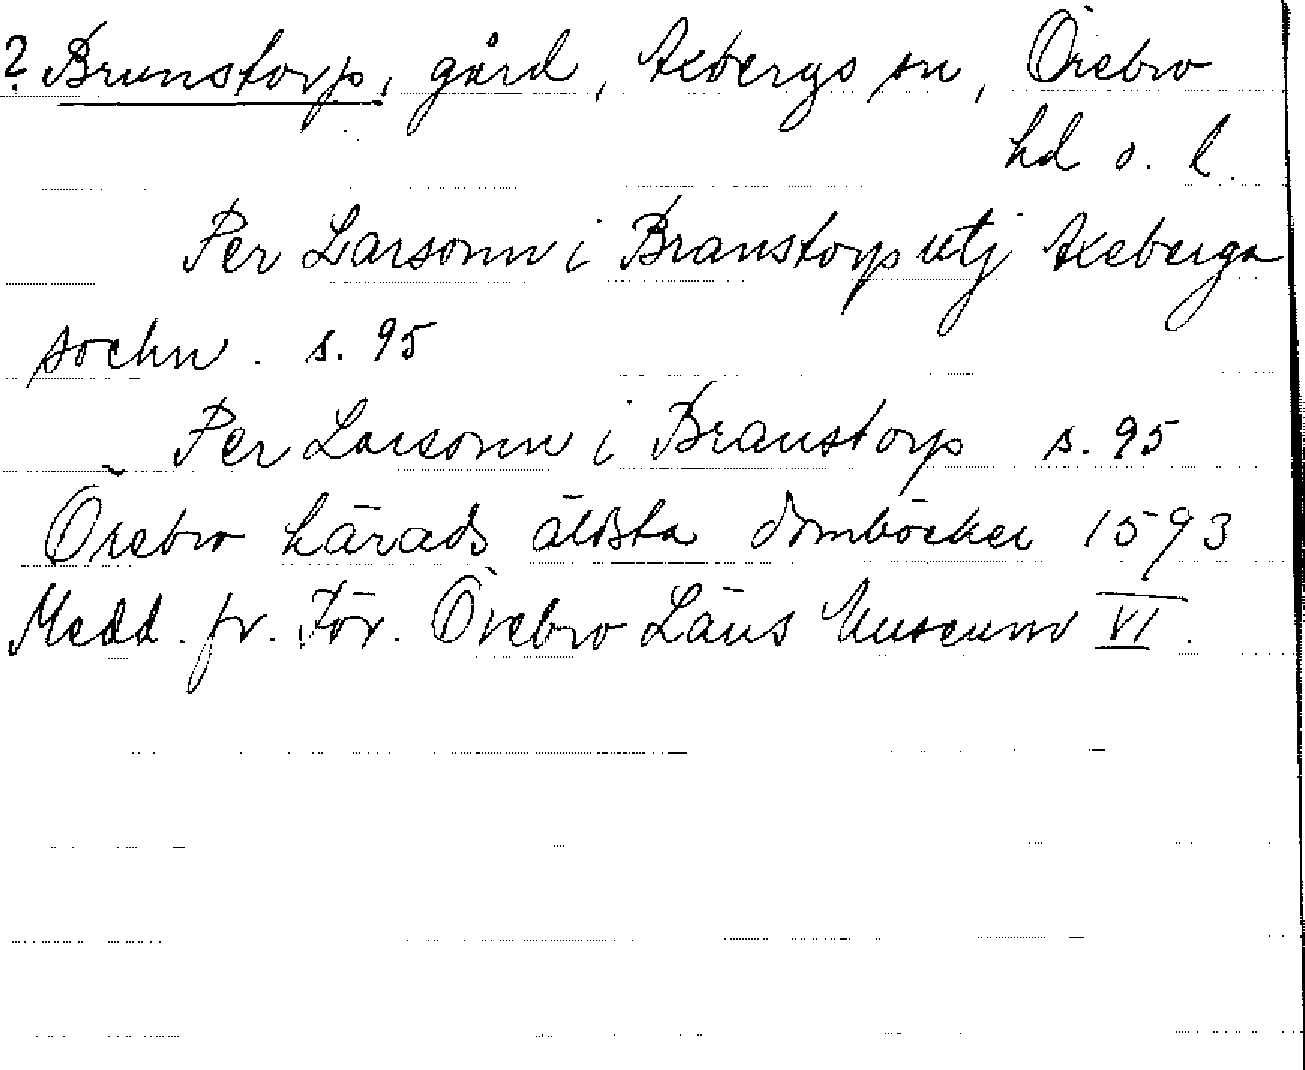 ? Brunstorp, gård, Axbergs sn, Örebro
hd o. l.
Per Larsonn i Branstorp utj Axeberga
sochn. s. 95
Per Larsonn i Branstorp s. 95
Örebro härads äldsta domböcker 1593
Medd. fr. För. Örebro Läns Museum VI.